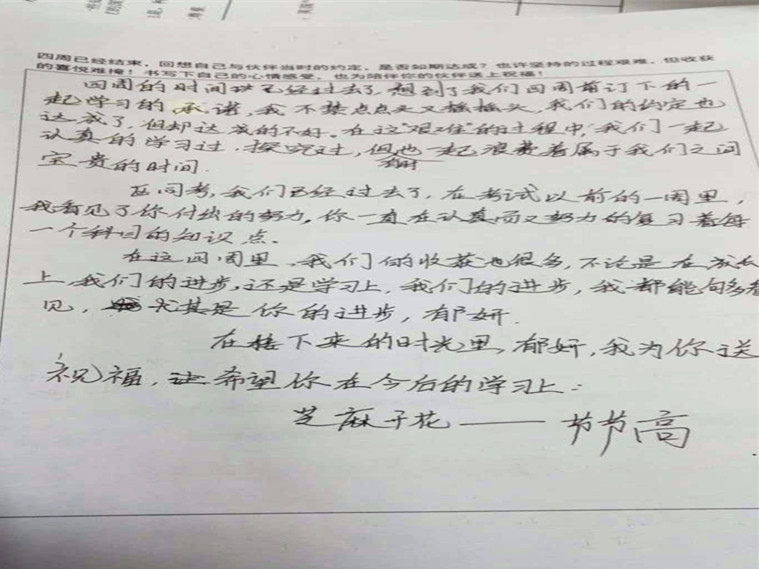 四周已经结束，回想自己与伙伴当时的约定，是否如期达成？也许坚持的过程艰难，但收获
的喜悦难掩！书写下自己的心情感受，也为陪伴你的伙伴送上祝福！
四周的时间已经过去了，想到了我们四周前订下的一
起学习的承诺，我不禁点点头又摇摇头，我们的约定也
达成了，但却达成的不好。在这"艰难"的过程中，我们一起
认真的学习过，探究过，但也一起浪费着属于我们之间
宝贵的时间.
区间考，我们已经过去了，在考试以前的一周里，
我看见了你付出的努力，你一直在认真而又努力的复习着每
一个科目的知识点.
在这四周里，我们的收获也很多，不论是在
上，我们的进步，还是学习上，我们的进步，我都能够多
见，尤其是你的进步，郁妍.
在接下来的时光里，郁妍，我为你送
祝福，希望你在今后的学习上：
芝麻子花——节节高